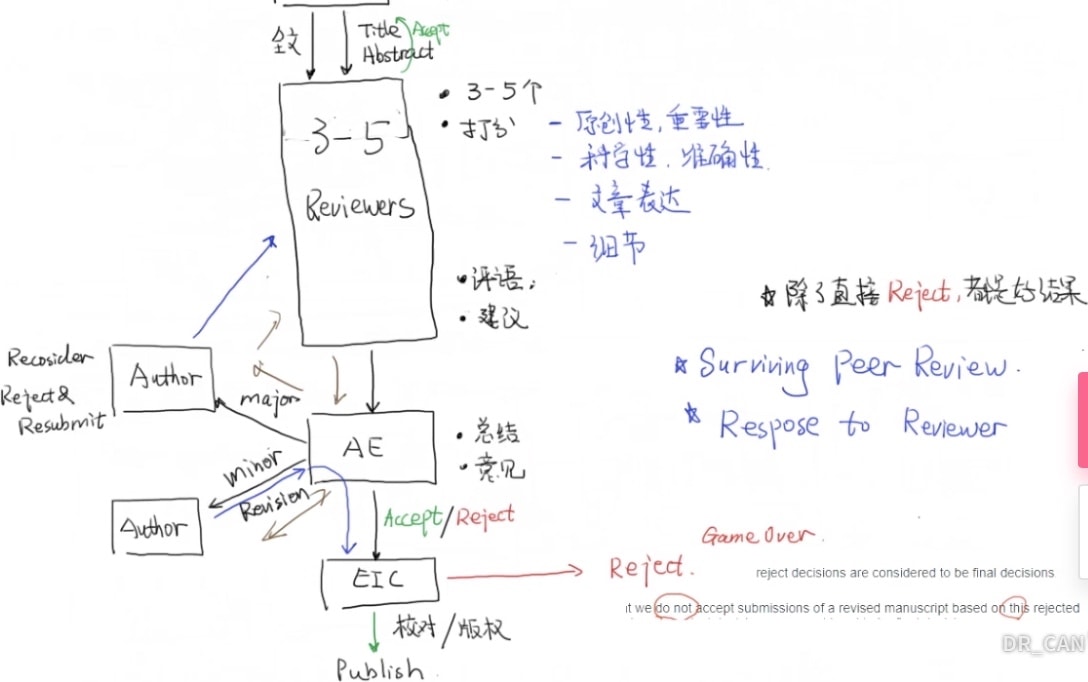 全文
Title Accept
Abstract
3-5
Reviewers
• 3-5个
• 打分
- 原创性,重要性
- 科学性. 准确性.
- 文章表达
- 细节
• 评语;
• 建议
☆ 除了直接Reject,都是好结果
☆ Surviving Peer Review.
☆ Respose to Reviewer
Recosider
Reject &
Resubmit
Author
major
AE
• 总结
• 意见
minor
Revision
Author
Accept/Reject
EIC
Reject.
Game Over.
reject decisions are considered to be final decisions
it we do not accept submissions of a revised manuscript based on this rejected
校对/版权
Publish
DR_CAN